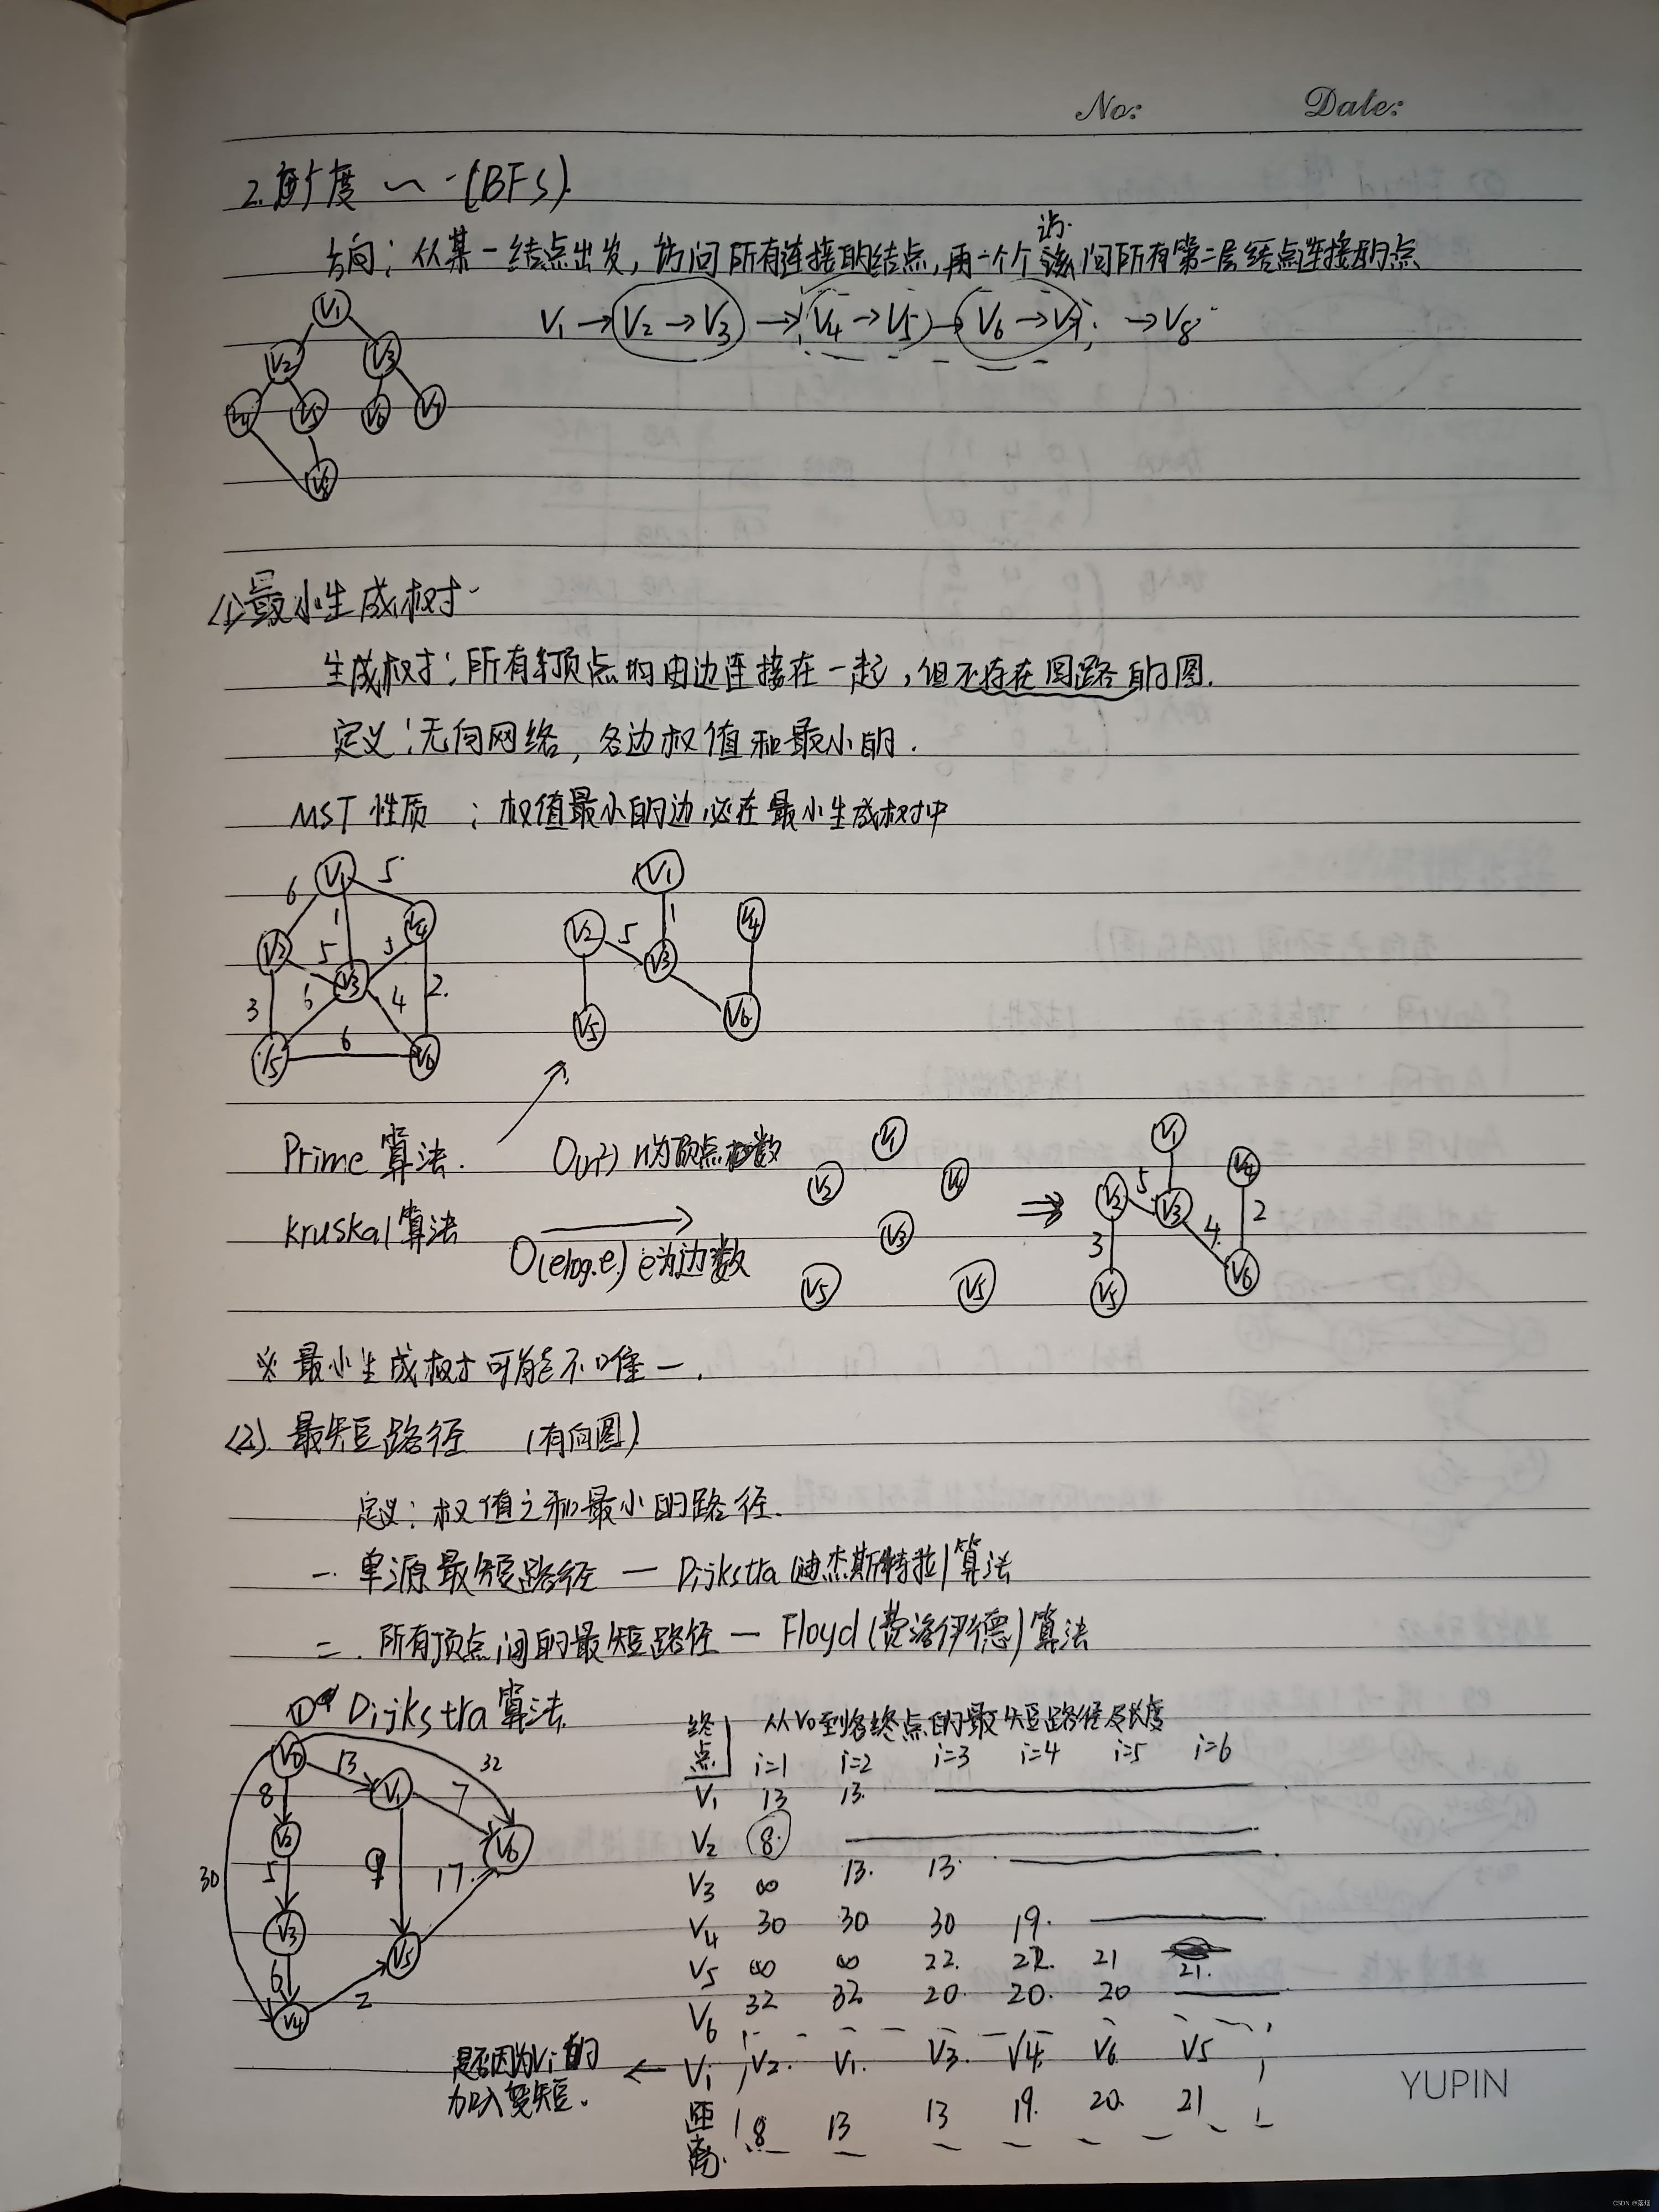 No: Date:
2.广度 ～ -(BFS).
方向：从某一结点出发，访问所有连接的结点，再一个个访问所有第二层结点连接的点
V1→V2→V3→V4→V5→V6→V7→V8
V1
V2 V3
V4 V5 V6 V7
V8
(1)最小生成树
生成树：所有顶点均由边连接在一起，但不存在回路的图.
定义：无向网络，各边权值和最小的.
MST 性质：权值最小的边必在最小生成树中
V1 6 5 1 V2 5 5 V4 V3 3 6 4 2. V5 6 V6
V1 1 V2 5 V3 V4 V5 V6
Prime 算法. O(n²) n为顶点数
kruskal 算法 O(elog.e) e为边数
V1 V2 V4 V3 V5 V5
⇒
V1 V2 5 V3 V4 3 4 2 V5 V6
※ 最小生成树可能不唯一.
(2). 最短路径 (有向图)
定义：权值之和最小的路径.
一. 单源最短路径 — Dijkstra (迪杰斯特拉) 算法
二. 所有顶点间的最短路径 — Floyd (费洛伊德) 算法
① Dijkstra 算法.
V0 13 32 8 V1 7 V2 V6 30 5 9 17 V3 V5 6 2 V4
终点 从V0到各终点的最短路径及长度
i=1 i=2 i=3 i=4 i=5 i=6
V1 13 13.
V2 8
V3 ∞ 13. 13.
V4 30 30 30 19.
V5 ∞ ∞ 22. 22. 21 21.
V6 32 32 20. 20. 20
Vi V2. V1. V3. V4. V6 V5
距离. 8 13 13 19. 20. 21
是否因为Vi的
加入变短.
YUPIN
CSDN @落烟